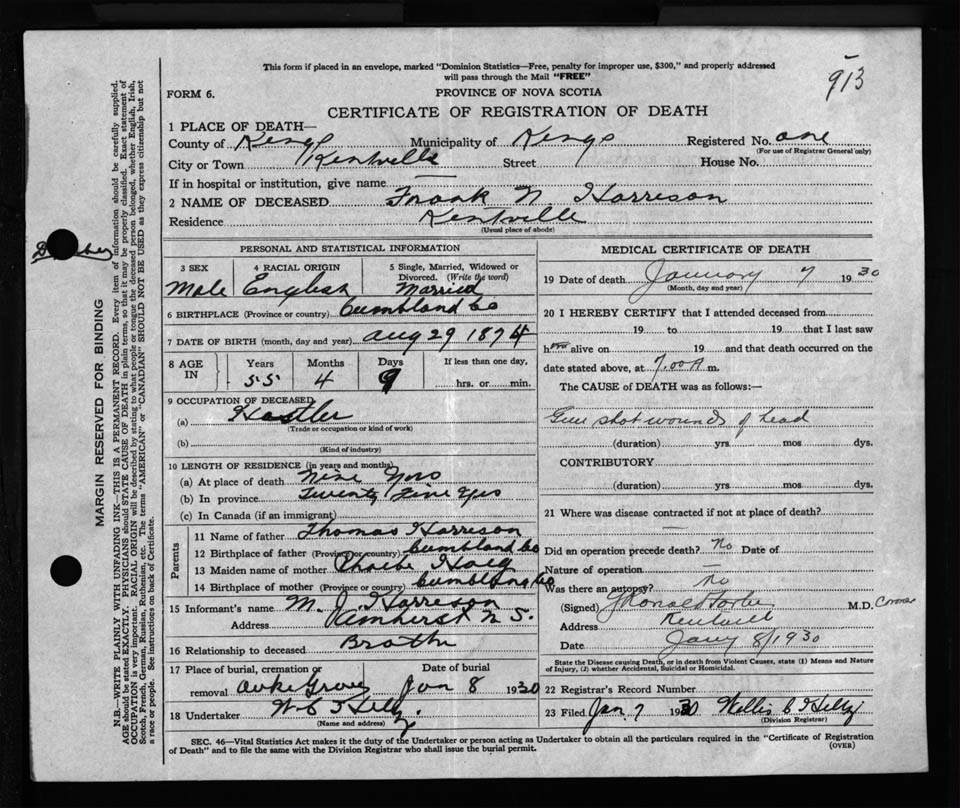 This form if placed in an envelope, marked "Dominion Statistics—Free, penalty for improper use, $300," and properly addressed
will pass through the Mail "FREE"
913
FORM 6.
PROVINCE OF NOVA SCOTIA
CERTIFICATE OF REGISTRATION OF DEATH
1 PLACE OF DEATH—
County of Kings Municipality of Kings Registered No. one
(For use of Registrar General only)
City or Town Kentville Street House No.
If in hospital or institution, give name —
2 NAME OF DECEASED Frank N Harrison
Residence Kentville
(Usual place of abode)
PERSONAL AND STATISTICAL INFORMATION
3 SEX 4 RACIAL ORIGIN 5 Single, Married, Widowed or
Divorced. (Write the word)
Male English Married
6 BIRTHPLACE (Province or country) Cumbland Co
7 DATE OF BIRTH (month, day and year) Aug 29 1874
8 AGE IN Years Months Days If less than one day,
55 4 9 hrs. or min.
9 OCCUPATION OF DECEASED
(a) Hostler
(Trade or occupation or kind of work)
(b)
(Kind of industry)
10 LENGTH OF RESIDENCE (in years and months)
(a) At place of death Nine Yrs
(b) In province Twenty Yrs
(c) In Canada (if an immigrant)
Parents
11 Name of father Thomas Harrison
12 Birthplace of father (Province or country) Cumbland Co
13 Maiden name of mother Phoebe Haig
14 Birthplace of mother (Province or country) Cumbland Co
15 Informant's name M. J. Harrison
Address Amherst N S.
16 Relationship to deceased Broth
17 Place of burial, cremation or Date of burial
removal Grove Jan 8 1930
18 Undertaker W C
(Name and address)
MEDICAL CERTIFICATE OF DEATH
19 Date of death January 7 1930
(Month, day and year)
20 I HEREBY CERTIFY that I attended deceased from
19 to 19 that I last saw
h alive on 19 and that death occurred on the
date stated above, at 7.00 A m.
The CAUSE of DEATH was as follows:—
Gun shot wounds of head
(duration) yrs mos dys.
CONTRIBUTORY
(duration) yrs mos dys.
21 Where was disease contracted if not at place of death?
—
Did an operation precede death? No Date of
Nature of operation —
Was there an autopsy? No
(Signed) M.D. Coroner
Address Kentville
Date Jany 8/1930
State the Disease causing Death, or in death from Violent Causes, state (1) Means and Nature
of Injury, (2) whether Accidental, Suicidal or Homicidal.
22 Registrar's Record Number
23 Filed Jan 7 1930 Willis C
(Division Registrar)
SEC. 46—Vital Statistics Act makes it the duty of the Undertaker or person acting as Undertaker to obtain all the particulars required in the "Certificate of Registration
of Death" and to file the same with the Division Registrar who shall issue the burial permit.
(OVER)
MARGIN RESERVED FOR BINDING
N.B.—WRITE PLAINLY WITH UNFADING INK—THIS IS A PERMANENT RECORD. Every item of information should be carefully supplied.
AGE should be stated EXACTLY. PHYSICIANS should STATE CAUSE OF DEATH in plain terms, so that it may be properly classified. Exact statement of
OCCUPATION is very important. RACIAL ORIGIN will be described by stating to what people or tongue the deceased person belonged, whether English, Irish,
Scotch, French, German, Russian, Ruthenian, etc. The terms "AMERICAN" or "CANADIAN" SHOULD NOT BE USED as they express citizenship but not
a race or people. See instructions on back of Certificate.